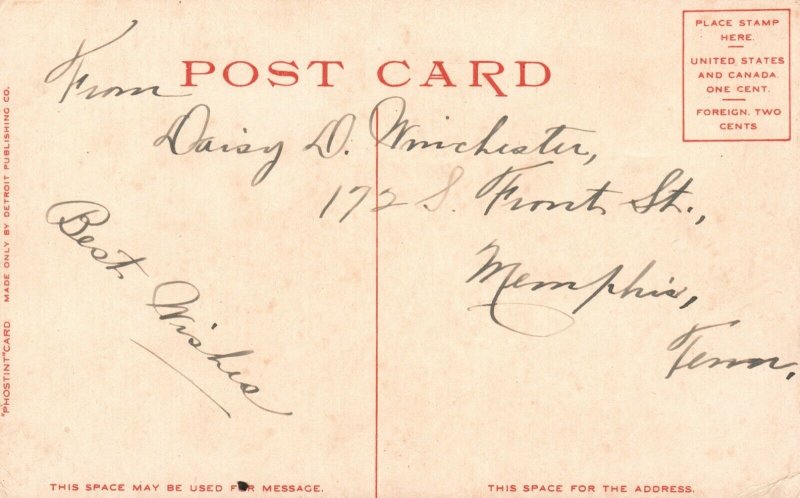 POST CARD
PLACE STAMP
HERE.
UNITED STATES
AND CANADA.
ONE CENT.
FOREIGN, TWO
CENTS
From
Daisy D. Winchester,
172 S. Front St.,
Memphis,
Tenn.
Best Wishes
"PHOSTINT" CARD MADE ONLY BY DETROIT PUBLISHING CO.
THIS SPACE MAY BE USED FOR MESSAGE.
THIS SPACE FOR THE ADDRESS.